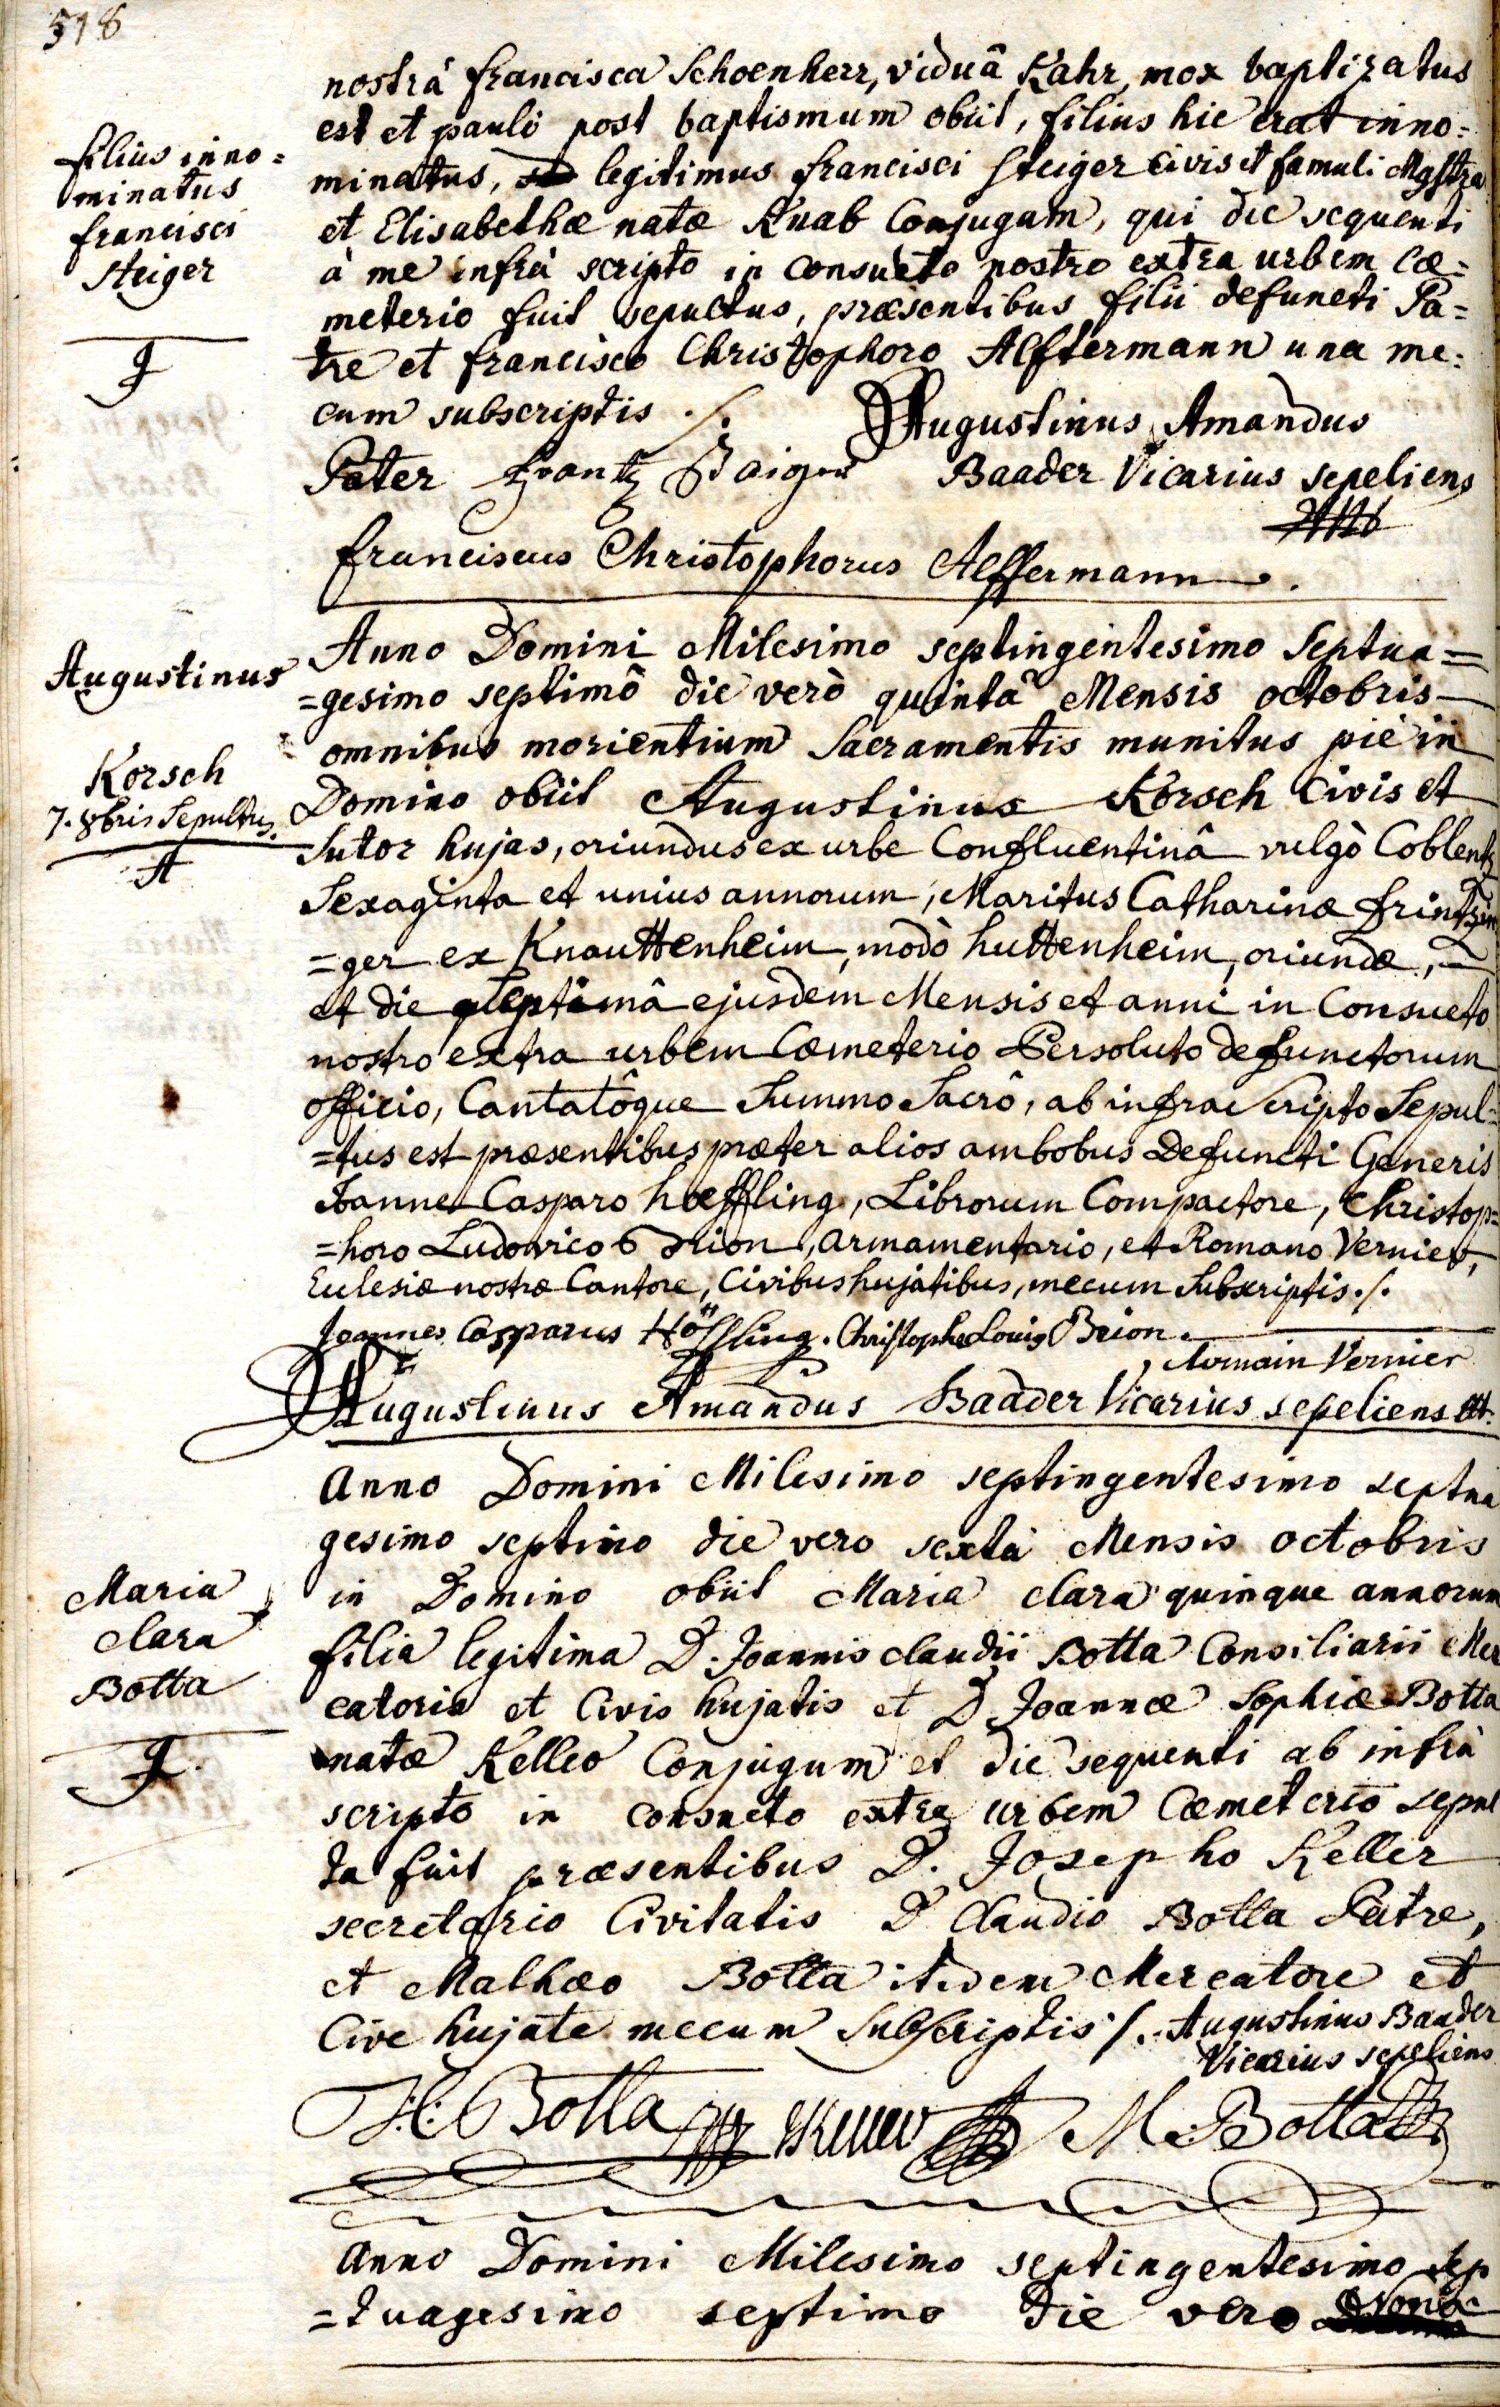 518
nostrâ francisca Schoenherr, viduâ Kahr, mox baptizatus
est et pauli post baptismum obiit, filius hic erat inno=
minatus, legitimus francisci Steiger civis et famuli Mgstra
et Elisabethæ natæ Knab Conjugum, qui die sequenti
à me infrà scripto in consueto nostro extra urbem Cœ=
meterio fuit sepultus, præsentibus filii defuncti Pa=
tre et francisco Christophoro Alftermann una me=
cum subscriptis ./.
filius inno=
minatus
francisci
Steiger
Augustinus Amandus
Baader Vicarius sepeliens
Pater frantz Staiger
franciscus Christophorus Aeffermann.
Augustinus
Korsch
7. 8bris Sepultus.
A
Anno Domini Milesimo septingentesimo Septua=
=gesimo septimô die verò quintâ Mensis octobris
omnibus morientium Sacramentis munitus piè in
Domino obiit Augustinus Korsch Civis et
Sutor hujas, oriundus ex urbe Confluentinâ vulgò Coblentz
Sexaginta et unius annorum, Maritus Catharinæ frintzin
=ger ex Knauttenheim, modò huttenheim, oriundæ,
et die septimâ ejusdem Mensis et anni in Consueto
nostro extra urbem Cœmeterio Persoluto defunctorum
officio, Cantatôque Summo Sacrô, ab infra Scripto Sepul=
=tus est præsentibus præter alios ambobus Defuncti Generis
Joanne Casparo hœffling, Librorum Compactore, Christop=
=horo Ludovico Brion, armamentario, et Romano Vernier,
Eclesiæ nostræ Cantore, Civibus hujatibus, mecum Subscriptis ./.
Joannes Casparus Höffling. Christophe Louis Brion.
Romain Vernier
Augustinus Amandus Baader Vicarius sepeliens
Maria
Clara
Botta
Anno Domini Milesimo septingentesimo septua
gesimo septimo die vero sextâ Mensis octobris
in Domino obiit Maria Clara quinque annorum
filia legitima D. Joannis Claudii Botta Consiliarii Mer
catoris et Civis hujatis et D Joannæ Sophiæ Botta
natæ Keller Conjugum et die sequenti ab infrà
scripto in consueto extra urbem Cœmeterio sepul
ta fuit præsentibus D. Josepho Keller
secretario Civitatis D Claudio Botta Patre,
et Mathæo Botta itidem Mercatore et
Cive hujate mecum Subscriptis ./. Augustinus Baader
Vicarius sepeliens
J: C: Botta Keller M. Botta
Anno Domini Milesimo septingentesimo sep
=tuagesimo septimo die vero Nonâ